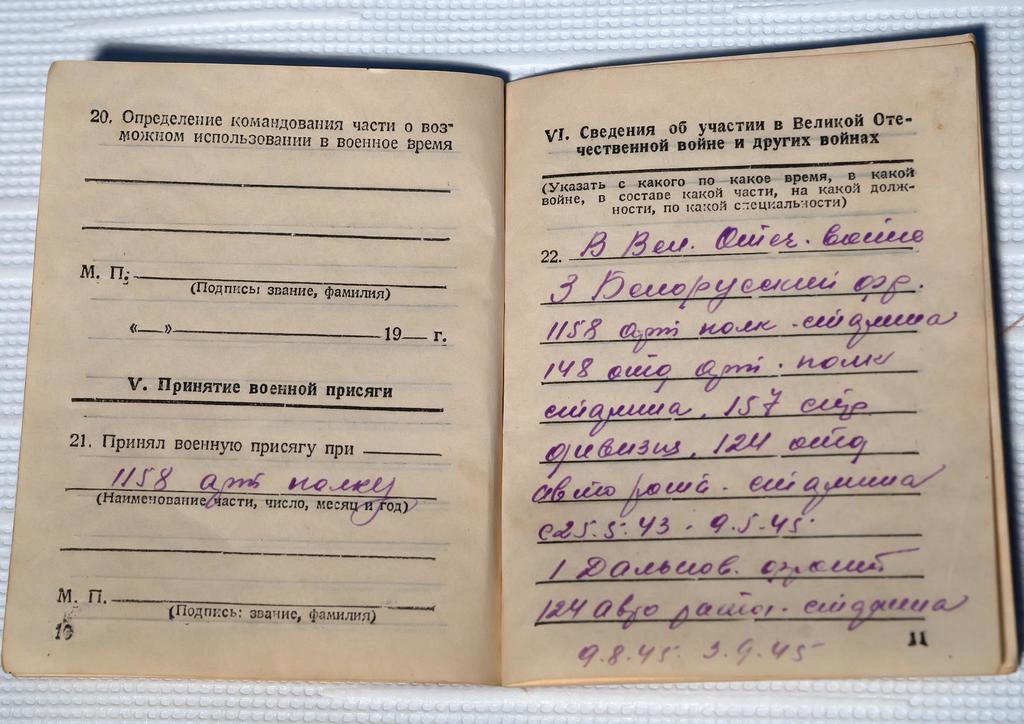 20. Определение командования части о воз-
можном использовании в военное время
М. П.
(Подпись: звание, фамилия)
«—» 19— г.
V. Принятие военной присяги
21. Принял военную присягу при
1158 арт полку
(Наименование части, число, месяц и год)
М. П.
(Подпись: звание, фамилия)
10
VI. Сведения об участии в Великой Оте-
чественной войне и других войнах
(Указать с какого по какое время, в какой
войне, в составе какой части, на какой долж-
ности, по какой специальности)
22. В Вел. Отеч. войне
3 Белорусский фр.
1158 арт полк - стдлина
148 отд арт. полк
157 стр
дивизии, 124 отд
авто рота
с 25.5.43 - 9.5.45.
1 Дальнов. фронт
124 авто рота
9.8.45. 3.9.45
11